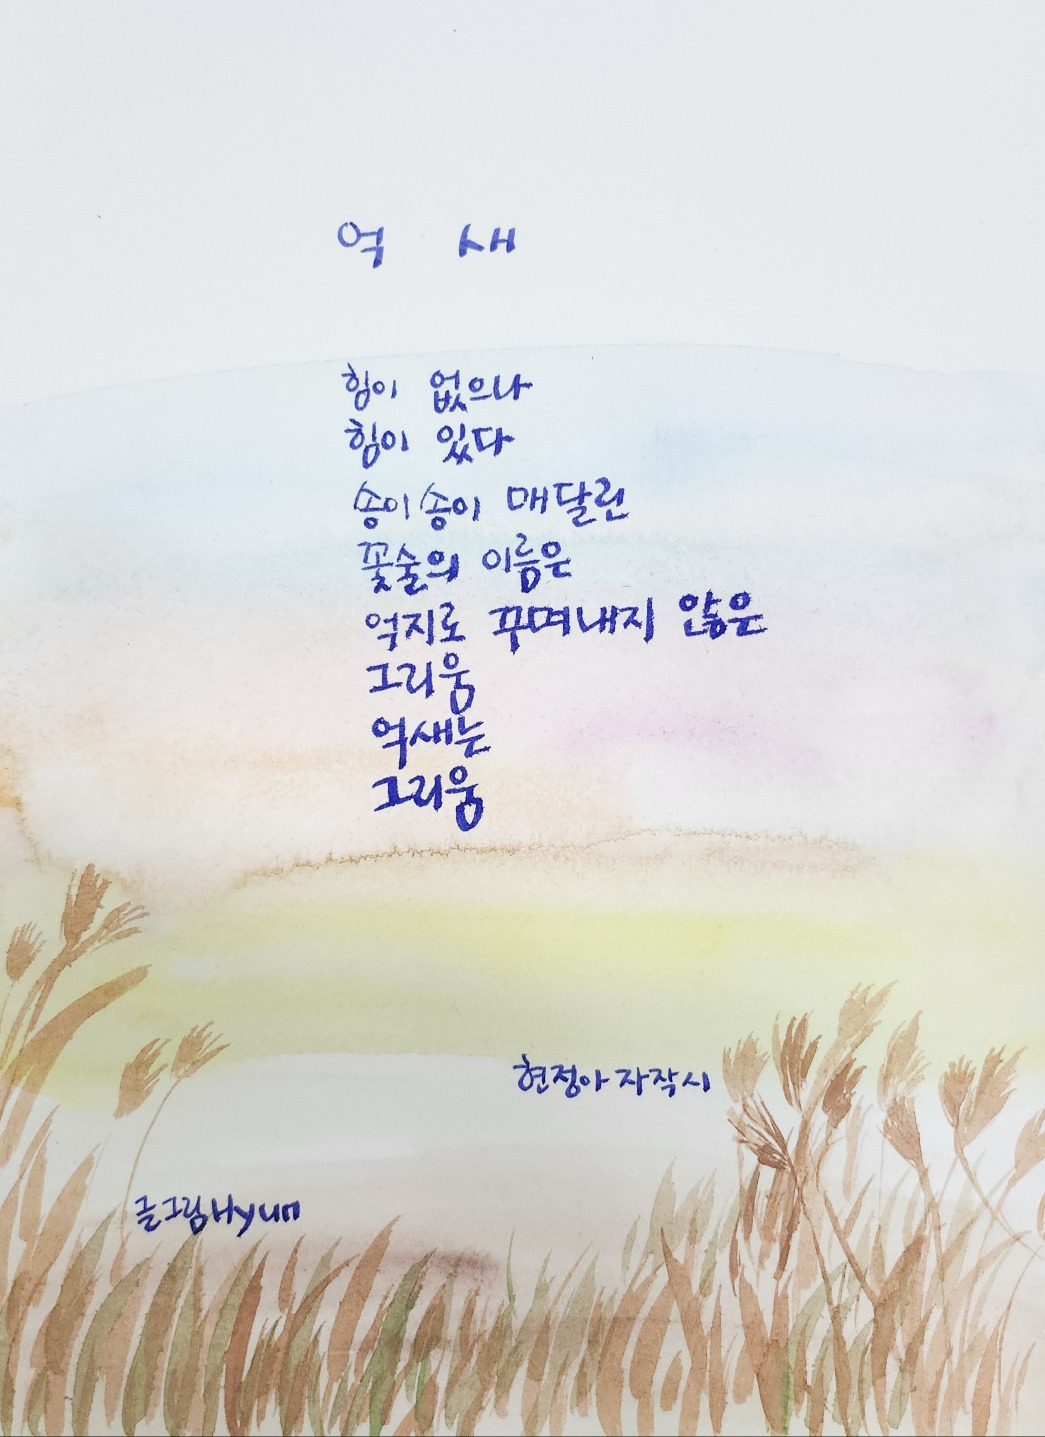 억 새
힘이 없으나
힘이 있다
송이송이 매달린
꽃술의 이름은
억지로 꾸며내지 않은
그리움
억새는
그리움
현정아 자작시
글그림Hyun